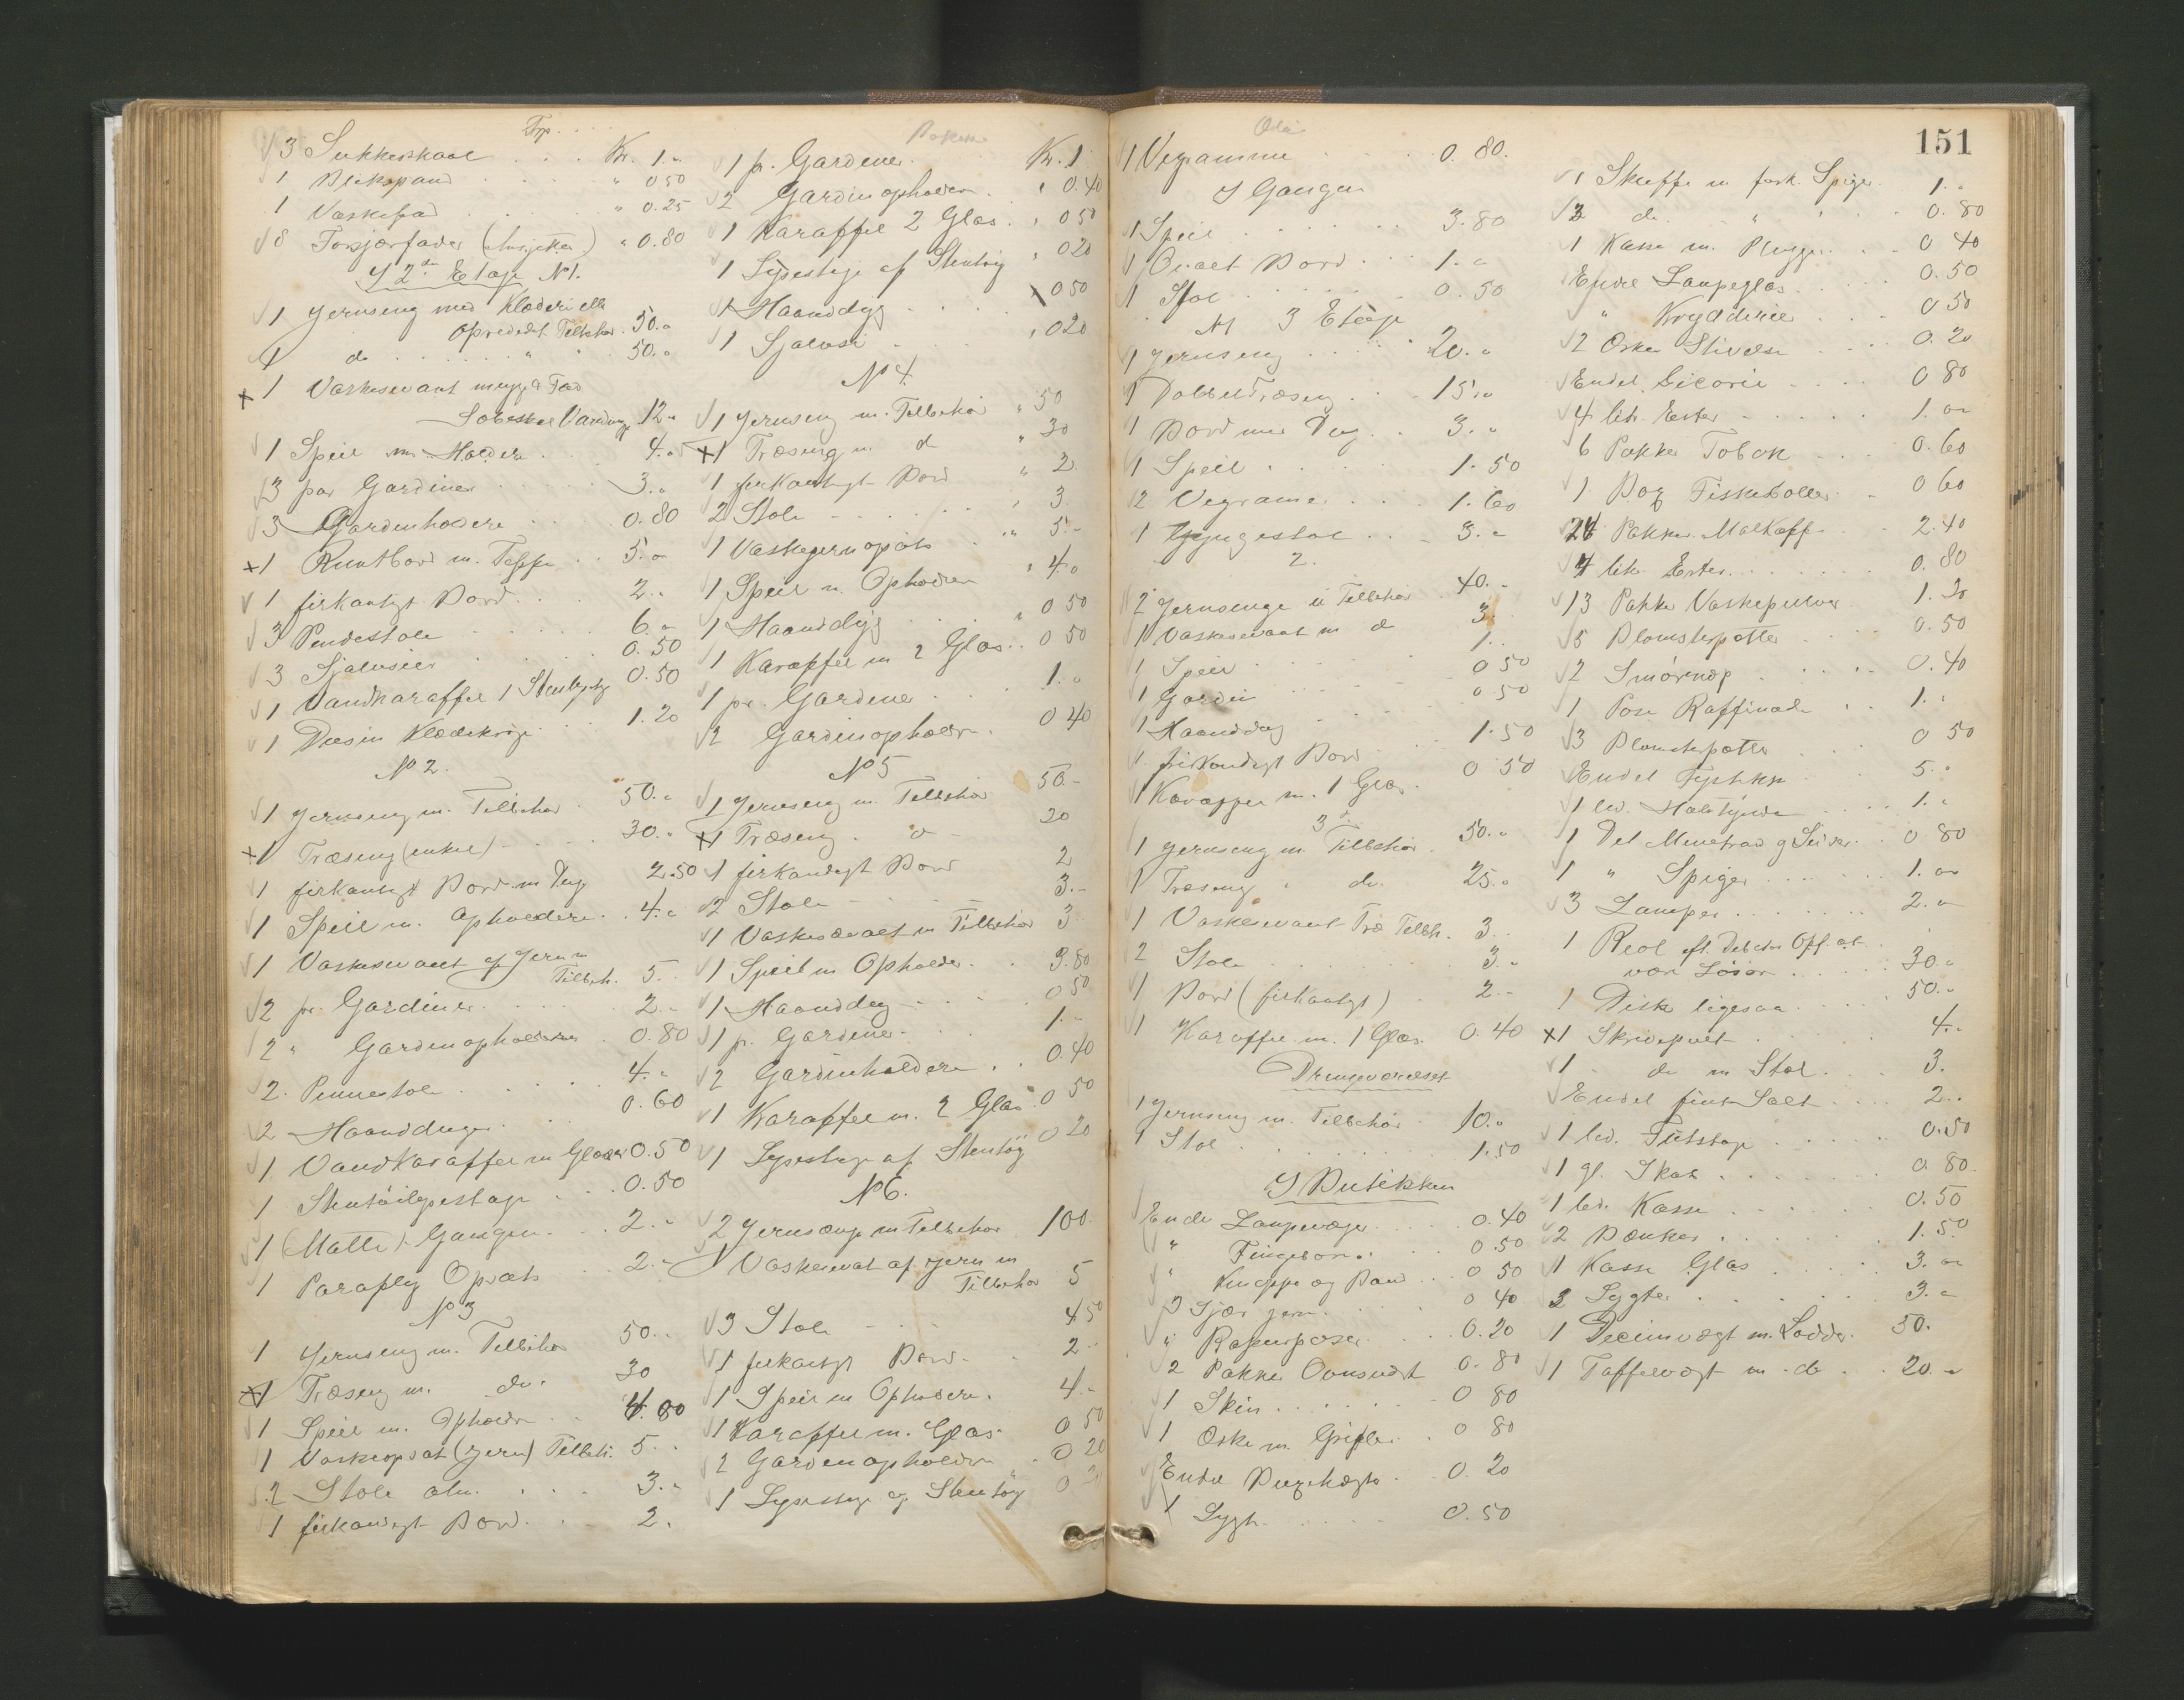 Trp. . . .
3 Sukkerskaal . . . Kr. 1.-
1 Blikspand . . . " 0 50
1 Vaskefad . . . " 0.25
8 Tørsjørfader " 0.80
I 2den Etage No 1.
1 Jernseng med Klæder eller
opredet Tilbehør. 50.-
1 do . . . . " " 50.-
x 1 Vaskeservant mugge Fad
Sæbeskaal Vandmugge 12.-
1 Speil m. Holdere . . 4.-
3 par Gardiner . . . 3.-
3 Gardinholdere . . 0.80
x 1 Rundtbord m. Teppe . . 5.-
1 firkantigt Bord . . . 2.-
3 Pindestole . . . 6.-
3 Sjalusier . . . 0.50
1 Vandkaraffel 0.50
1 Dusin Klædekroge . . 1.20
No 2.
1 Jernseng m. Tilbehør . 50.-
x 1 Træseng (enkel) . . . 30.-
1 firkantigt Bord m Dug 2.50
1 Speil m. Opholdere . . 4.-
1 Vaskeservant af Jern m
Tilbeh. 5. .
2 pr. Gardiner . . . 2.-
2 " Gardinopholdere . 0.80
2. Pinnestole . . . 4.-
2 Haanddugge . . . 0.60
1 Vandkaraffel m Glasser 0.50
1 Stentøilysestage . . . 0.50
1 Matte i Gangen . . 2.-
1 Paraply Opsats . . 2.-
No 3
1 Jernseng m. Tilbehør 50. .
x 1 Træseng m. do. 30
1 Speil m. Opholdere . . 4.80
1 Vaskeopsat (Jern) Tilbeh. 5. .
2 Stole alm. . . . 3.-
1 firkantigt Bord . . . 2.
1 pr. Gardiner. . . Kr. 1
2 Gardinopholdere . " 0.40
1 Karaffel 2 Glas . " 0 50
1 Lysestage af Stentøy " 0 20
1 Haanddug . . . 0 50
1 Sjalusi . . . " 0 20
No 4
1 Jernseng m. Tilbehør " 50
x 1 Træseng m d " 30
1 firkantigt Bord " 2
2 Stole . . . " 3.
1 Vaskejernopsats . . " 5.-
1 Speil m. Opholdere " 4.0
1 Haanddug . . . " 0 50
1 Karaffel m 2 Glas . . 0 50
1 pr. Gardiner . . . 1.-
2 Gardinopholdere . 0 40
No 5
1 Jernseng m. Tilbehør 50.-
x 1 Træseng . do - 20
1 firkantigt Bord 2
2 Stole . . . 3.-
1 Vaskeservant m Tilbehør 3
1 Speil m Opholder . . 3.80
1 Haanddug . . . 0 50
1 pr. Gardiner . . . 1.-
2 Gardinholdere . . 0.40
1 Karaffel m. 2 Glas . 0 50
1 Lysestage af Stentøy 0 20
No 6.
2 Jernsenge m Tilbehør 100.
1 Vaskeservant af Jern m
Tilbehør 5
3 Stole . . . 4 50
1 firkantigt Bord . . 2 -
1 Speil m Opholdere . 4.-
1 Karaffel m. Glas . 0 50
2 Gardinopholdere . 0 20
1 Lysestage af Stentøy 0 20
151
1 Vegramme . . . 0. 80.
I Gangen
1 Speil . . . 3.80
1 Ovalt Bord . . . 1.-
1 Stol . . . 0.50
3 Etage
1 Jernseng . . . 20.-
1 Dobbel Træseng . . 15.-
1 Bord med Dug . . 3.-
1 Speil . . . 1.50
2 Vegrame . . . 1.60
1 Gyngestol . . . 3.-
2.
2 Jernsenge m Tilbehør . 40. -
1 Vaskeservant m d 3.
1 Speil . . . 1. .
1 Gardin . . . 0 50
1 Haanddug . . . 0 50
1 firkandigt Bord . . . 1.50
1 Karaffel m. 1 Glas . 0 50
3.
1 Jernseng m. Tilbehør . 50.-
1 Træseng " do. 25.-
1 Vaskeservant Træ Tilbh. 3. .
2 Stole . . . 3.-
1 Bord (firkantigt) . 2.-
1 Karaffel m. 1 Glas . 0.40
Drengeværelset
1 Jernseng m. Tilbehør . 10.-
1 Stol . . . 1.50
I Butikken
Endel Lampevæger . . . 0.40
" Fingerbøl . . 0.50
" Knapper og Baand . . 0 50
3 Sjær jern . . . 0 40
" Papirposer . . . 0.20
2 Pakker Ovnsvært 0.80
1 Skin . . . 0 80
1 Æske m. Grifler . . 0 80
Endel Buxehægter . . 0. 20
1 Lygt . . . 0.50
1 Skuffe m forsk. Spiger . 1.-
2 do. . . " . . 0.80
1 Kasse m. Plugger . . 0 40
Endel Lampeglas . . . 0.50
" Krydderier . . . 0 50
2 Æsker Stivelse . . . 0.20
Endel Sicorie . . . 0 80
4 litr. Erter . . . 1.00
6 Pakker Tobak . . . 0.60
1 Box Fiskeboller . . 0 60
24 Pakker Maltkaffe . . 2.40
4 litr. Erter . . . 0.80
13 Pakker Vaskepulver . 1.30
5 Blomsterpotter . . 0.50
2 Smørnap . . . 0.40
1 Pose Raffinade . . 1.-
3 Blomsterpotter . . 0 50
Endel 5.-
1 led. Halvtynde . . 1.-
1 Del 0 80
1 " Spiger . . . 1.00
3 Lamper . . . 2.-
1 Reol efter Debitors Opg. at
være Løsøre . . . 30.-
1 Disk ligesaa . . . 50.-
x 1 Skrivepult . . . 4.-
1 do m Stol . . . 3.
Endel fint Salt . . . 2. .
1 led. Fustage . . . 0.50
1 gl. Skab . . . 0. 80.
1 led. Kasse . . . 0.50
2 Bænker . . . 1.50
1 Kasse Glas . . . 3.00
2 Lygter . . . 3.-
1 Decimvægt m. Lodder . 30.
1 Taffelvægt m - do . . 20.-